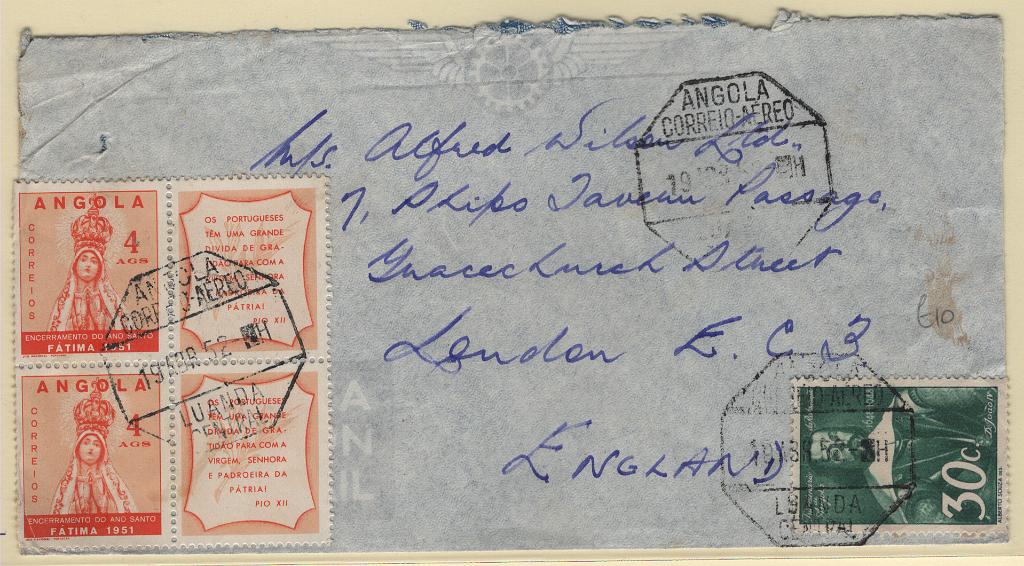 ANGOLA
CORREIO-AÉREO
19
H
Mrs. Alfred Wilson Ltd.,
7, Ships Tavern Passage,
Gracechurch Street
London E.C.3
ENGLAND
£10
ANGOLA
CORREIOS
4
AGS
ENCERRAMENTO DO ANO SANTO
FÁTIMA 1951
OS PORTUGUESES
TÊM UMA GRANDE
DIVIDA DE GRA-
TIDÃO PARA COM A
SENHORA
DA
PÁTRIA!
PIO XII
ANGOLA
CORREIO-AÉREO
19 ABR 52 H
LUANDA
CENTRAL
ANGOLA
CORREIOS
4
AGS
ENCERRAMENTO DO ANO SANTO
FÁTIMA 1951
OS PORTUGUESES
TÊM UMA GRANDE
DIVIDA DE GRA-
TIDÃO PARA COM A
VIRGEM, SENHORA
E PADROEIRA DA
PÁTRIA!
PIO XII
LUANDA
CENTRAL
30C.
D. João IV
ALBERTO SOUZA